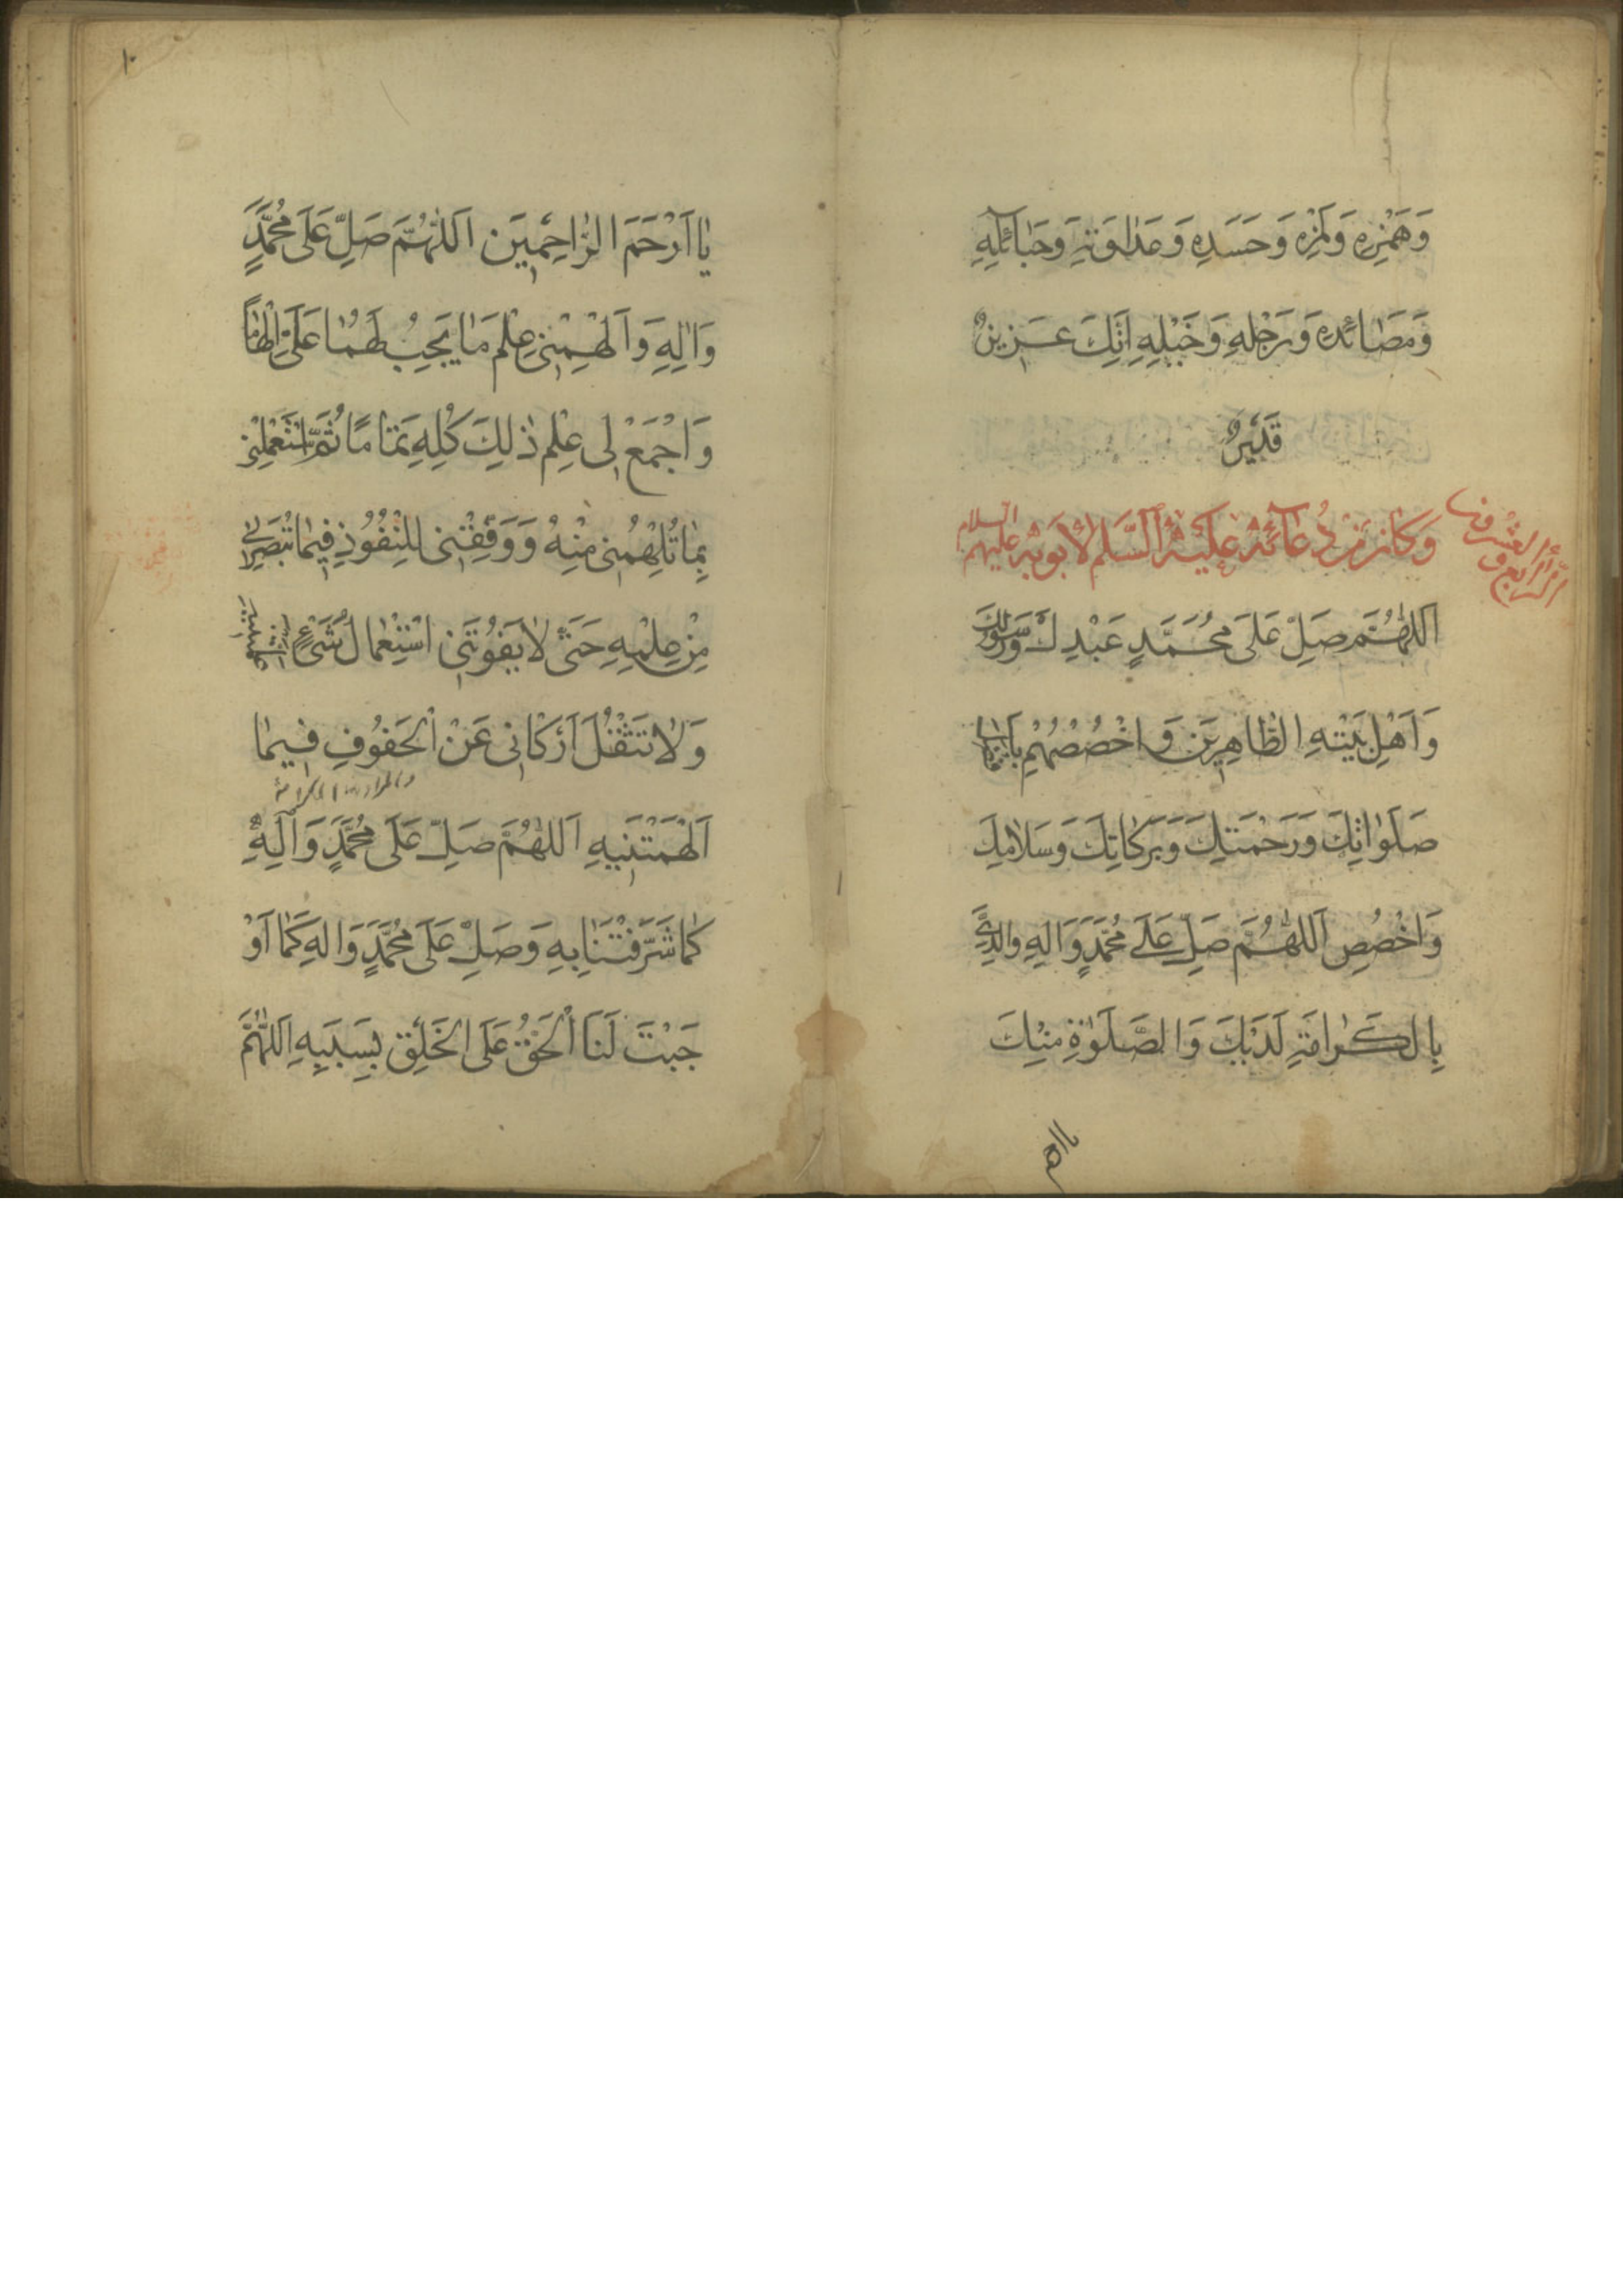 وَهَمْزِهِ وَلَمْزِهِ وَحَسَدِهِ وَعَدَاوَتِهِ وَحَبَائِلِهِ
وَمَصَائِدِهِ وَرَجْلِهِ وَخَيْلِهِ اِنَّكَ عَزِيزٌ
قَدِيرٌ
وَكَانَ مِنْ دُعَائِهِ عَلَيْهِ السَّلَامُ لِاَبَوَيْهِ عليهم السلام
الرابع والعشرون
اَللّٰهُمَّ صَلِّ عَلَى مُحَمَّدٍ عَبْدِكَ وَرَسُولِكَ
وَاَهْلِ بَيْتِهِ الطَّاهِرِينَ وَاخْصُصْهُمْ بِاَفْضَلِ
صَلَوَاتِكَ وَرَحْمَتِكَ وَبَرَكَاتِكَ وَسَلَامِكَ
وَاخْصُصِ اَللّٰهُمَّ صَلِّ عَلَى مُحَمَّدٍ وَآلِهِ وَالِدَيَّ
بِالْكَرَامَةِ لَدَيْكَ وَالصَّلٰوةِ مِنْكَ
يا ا
١٠
يَا اَرْحَمَ الرَّاحِمِينَ اَللّٰهُمَّ صَلِّ عَلَى مُحَمَّدٍ
وَآلِهِ وَاَلْهِمْنِي عِلْمَ مَا يَجِبُ لَهُمَا عَلَيَّ اِلْهَامًا
وَاجْمَعْ لِي عِلْمَ ذٰلِكَ كُلِّهِ تَمَامًا ثُمَّ اسْتَعْمِلْنِي
بِمَا تُلْهِمُنِي مِنْهُ وَوَفِّقْنِي لِلنُّفُوذِ فِيمَا تُبَصِّرُنِي
مِنْ عِلْمِهِ حَتَّى لَا يَفُوتَنِي اسْتِعْمَالُ شَيْءٍ
وَلَا تَثْقُلَ اَرْكَانِي عَنْ الْحَفُوفِ فِيمَا
اَلْهَمْتَنِيهِ اَللّٰهُمَّ صَلِّ عَلَى مُحَمَّدٍ وَآلِهِ
كَمَا شَرَّفْتَنَا بِهِ وَصَلِّ عَلَى مُحَمَّدٍ وَآلِهِ كَمَا اَوْ
جَبْتَ لَنَا الْحَقَّ عَلَى الْخَلْقِ بِسَبَبِهِ اَللّٰهُمَّ